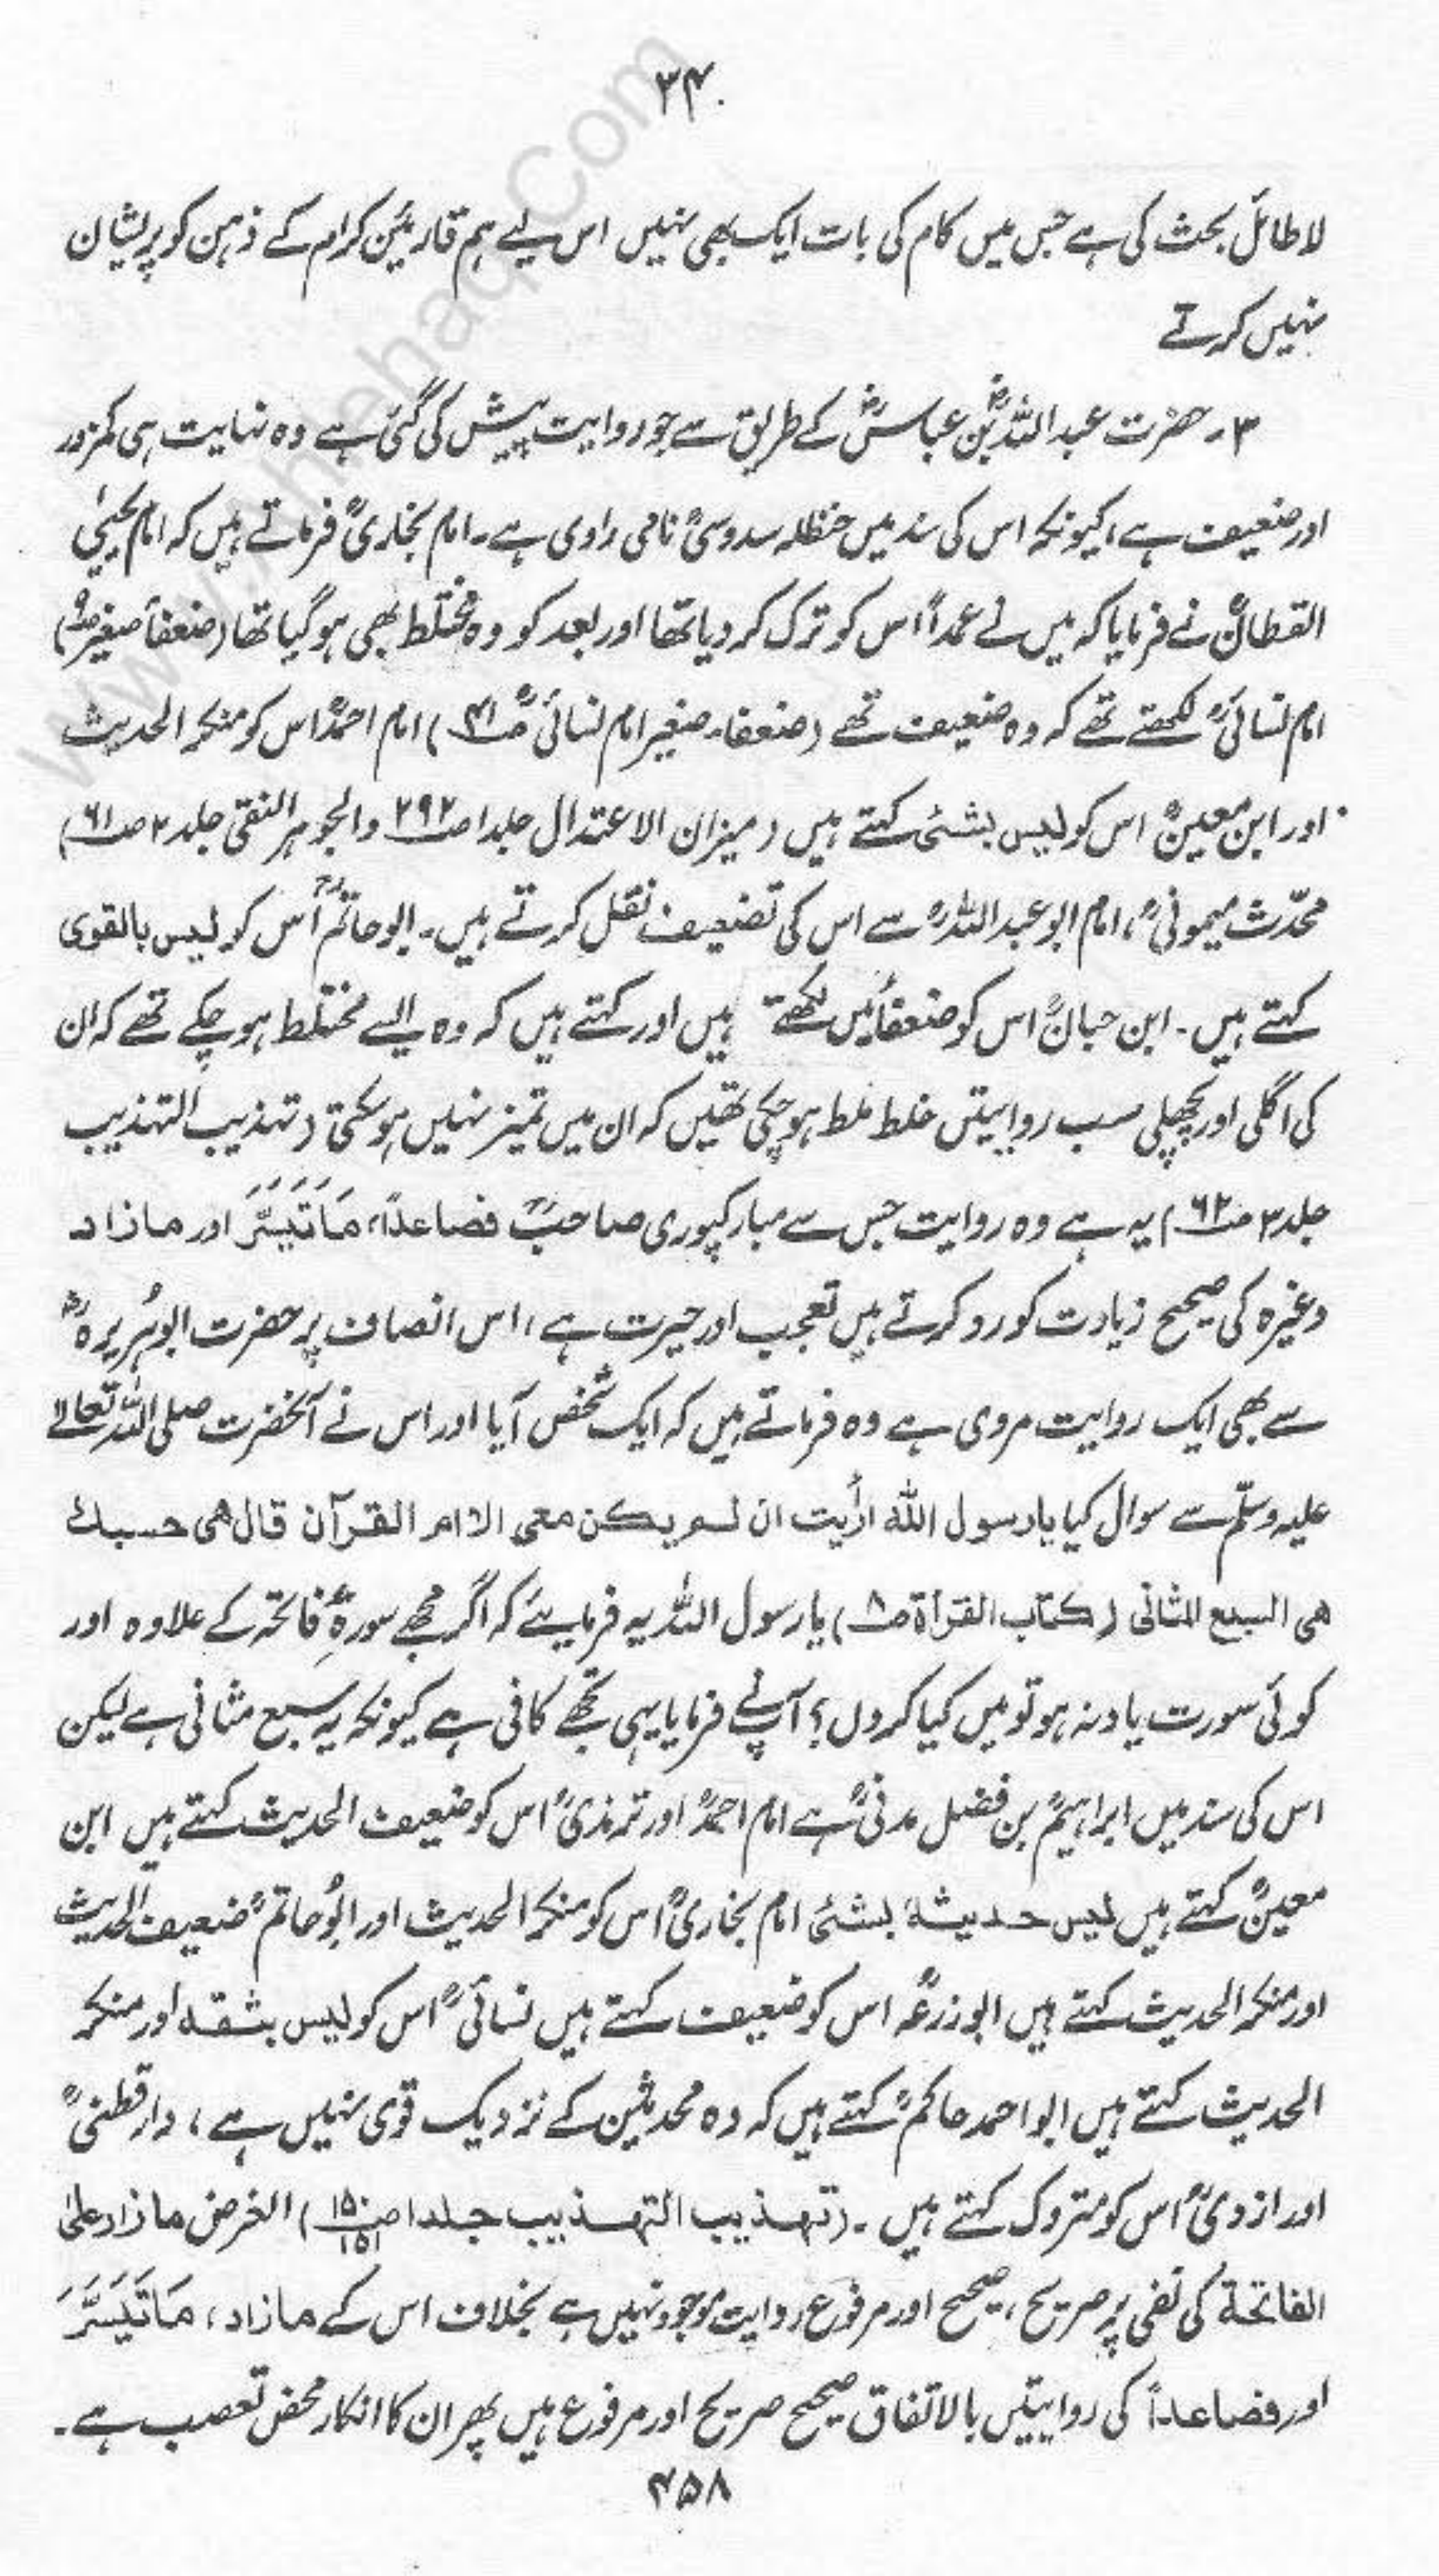 ۳۴۰
لاطائل بحث کی ہے جس میں کام کی بات ایک بھی نہیں اس لیے ہم قارئین کرام کے ذہن کو پریشان
نہیں کرتے
۳۔ حضرت عبد اللہؓ بن عباسؓ کے طریق سے جو روایت پیش کی گئی ہے وہ نہایت ہی کمزور
اور ضعیف ہے، کیونکہ اس کی سند میں حنظلہ سدوسیؒ نامی راوی ہے۔ امام بخاریؒ فرماتے ہیں کہ امام یحییٰ
القطانؒ نے فرمایا کہ میں نے عمداً اس کو ترک کر دیا تھا اور بعد کو وہ مختلط بھی ہو گیا تھا (ضعفأ صغیر
امام نسائیؒ لکھتے تھے کہ وہ ضعیف تھے (ضعفاء صغیر امام نسائیؒ ص۴۱) امام احمدؒ اس کو منکر الحدیث
اور ابن معینؒ اس کو لیس بشئی کہتے ہیں (میزان الاعتدال جلد۱ ص۲۹۲ والجوہر النقی جلد۲ ص۶۱)
محدّث میمونیؒ، امام ابو عبد اللہؒ سے اس کی تضعیف نقل کرتے ہیں۔ ابو حاتمؒ اُس کو لیس بالقوی
کہتے ہیں۔ ابن حبانؒ اس کو ضعفأ میں لکھتے ہیں اور کہتے ہیں کہ وہ ایسے مختلط ہو چکے تھے کہ ان
کی اگلی اور پچھلی سب روایتیں خلط ملط ہو چکی تھیں کہ ان میں تمیز نہیں ہو سکتی (تہذیب التہذیب
جلد۳ ص۶۲) یہ ہے وہ روایت جس سے مبارکپوری صاحبؒ فصاعداً، مَاتَیَسَّرَ اور مازاد
وغیرہ کی صحیح زیادت کو رد کرتے ہیں تعجب اور حیرت ہے، اس انصاف پر حضرت ابوہُریرہؓ
سے بھی ایک روایت مروی ہے وہ فرماتے ہیں کہ ایک شخص آیا اور اس نے آنحضرت صلی اللہ تعالےٰ
علیہ وسلّم سے سوال کیا یا رسول اللہ ارأیت ان لم یکن معی الا ام القرآن قال ھی حسبك
ھی السبع المثانی (کتاب القرأۃ ص۸) یا رسول اللہ یہ فرمایئے کہ اگر مجھے سورۂ فاتحہ کے علاوہ اور
کوئی سورت یاد نہ ہو تو میں کیا کروں؟ آپؐ نے فرمایا یہی تجھے کافی ہے کیونکہ یہ سبع مثانی ہے لیکن
اس کی سند میں ابراہیمؒ بن فضل مدنیؒ ہے امام احمدؒ اور ترمذیؒ اس کو ضعیف الحدیث کہتے ہیں ابن
معینؒ کہتے ہیں لیس حدیثہٗ بشئی امام بخاریؒ اس کو منکر الحدیث اور ابُو حاتمؒ ضعیف الحدیث
اور منکر الحدیث کہتے ہیں ابو زرعہؒ اس کو ضعیف کہتے ہیں نسائیؒ اس کو لیس بثقہ اور منکر
الحدیث کہتے ہیں ابو احمد حاکمؒ کہتے ہیں کہ وہ محدثین کے نزدیک قوی نہیں ہے، دارقطنیؒ
اور ازدیؒ اس کو متروک کہتے ہیں۔ (تہذیب التہذیب جلد۱ ص۱۵۰ ۱۵۱) الغرض مازاد علیٰ
الفاتحة کی نفی پر صریح، صحیح اور مرفوع روایت موجود نہیں ہے بخلاف اس کے مازاد، مَاتَیَسَّرَ
اور فصاعداً کی روایتیں بالاتفاق صحیح صریح اور مرفوع ہیں پھر ان کا انکار محض تعصب ہے۔
۴۵۸
www.Ahlehaq.Com